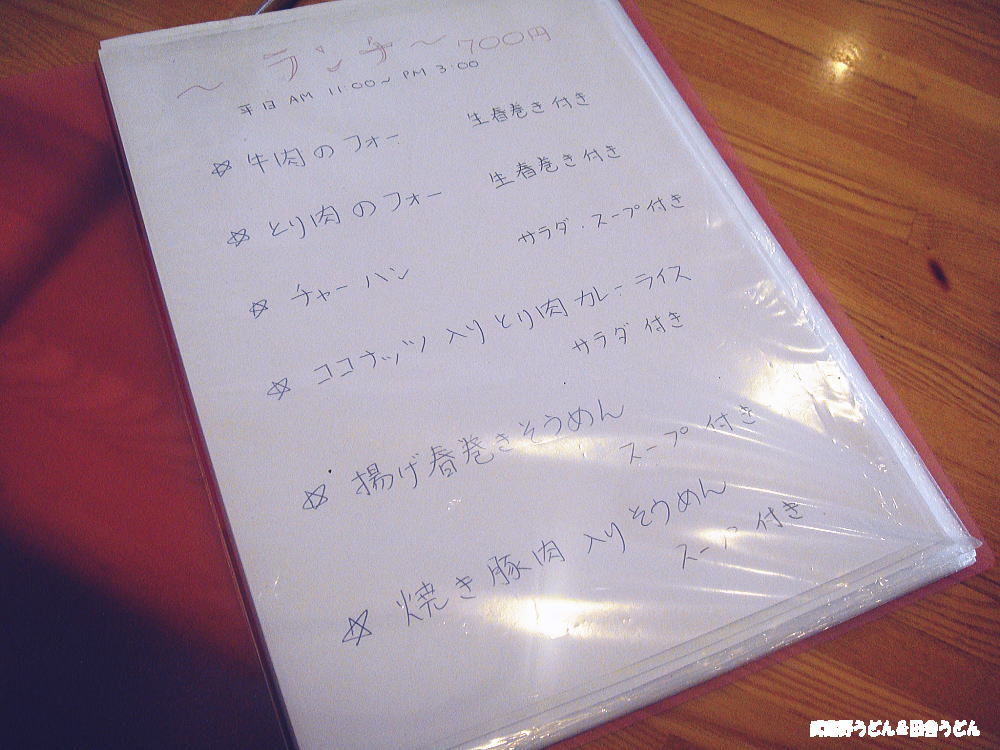 ～ ランチ ～ 700円
平日 AM 11:00～ PM 3:00
☆ 牛肉のフォー 生春巻き付き
☆ とり肉のフォー 生春巻き付き
☆ チャーハン サラダ・スープ付き
☆ ココナッツ入りとり肉カレーライス
サラダ付き
☆ 揚げ春巻きそうめん
スープ付き
☆ 焼き豚肉入りそうめん
スープ付き
武蔵野うどん&田舎うどん